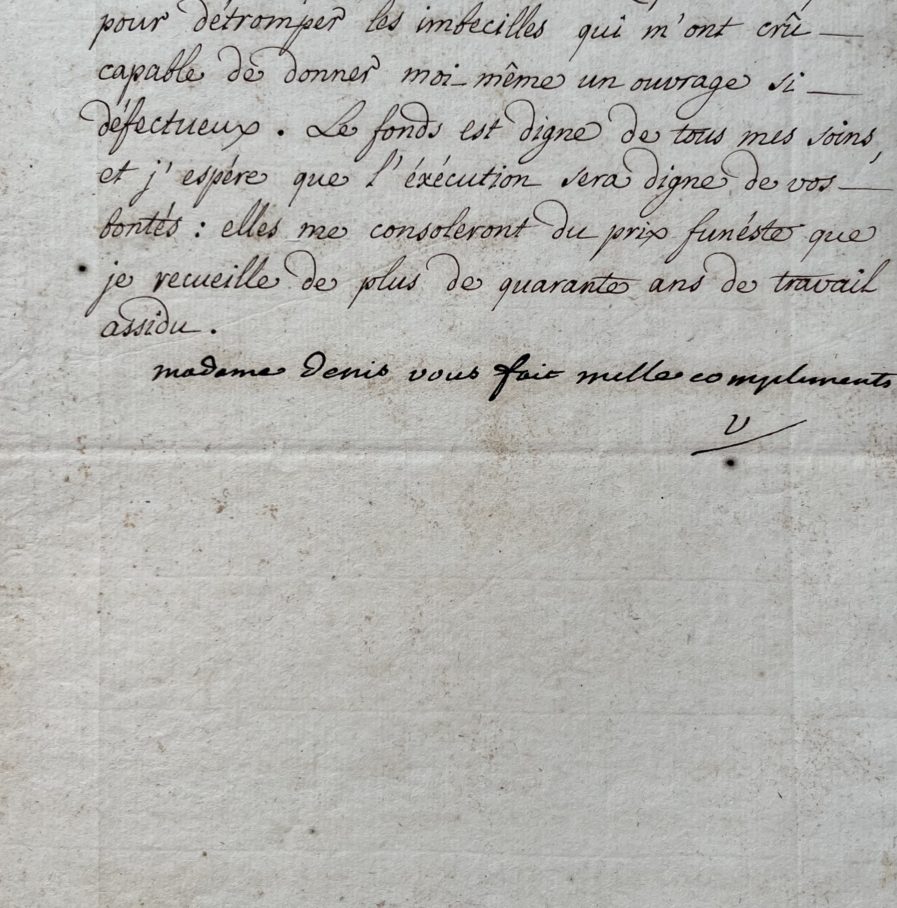 pour détromper les imbecilles qui m'ont crû
capable de donner moi-même un ouvrage si
défectueux. Le fonds est digne de tous mes soins,
et j'espére que l'éxécution sera digne de vos
bontés : elles me consoleront du prix funéste que
je recueille de plus de quarante ans de travail
assidu.
madame Denis vous fait mille compliments
V